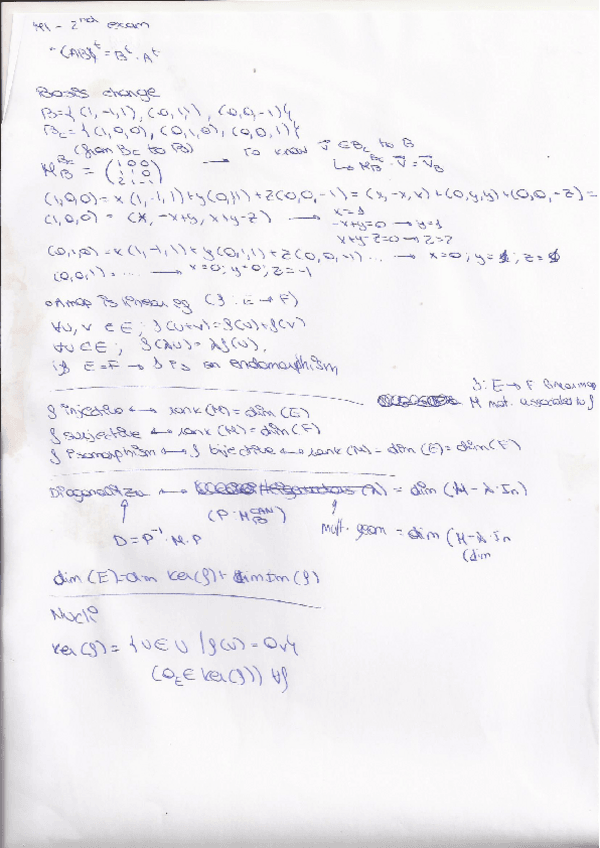 M1 - 2nd exam
(AB)ᵗ = Bᵗ · Aᵗ
Basis change
B = {(1,-1,1), (0,1,1), (0,0,-1)}
Bc = {(1,0,0), (0,1,0), (0,0,1)}
(from Bc to B) → To know v⃗ ∈ Bc to B
M_B^Bc = (1 0 0 / 1 1 0 / 2 1 -1) ↳ M_B^Bc · v⃗ = v⃗_B
(1,0,0) = x(1,-1,1)+y(0,1,1)+z(0,0,-1) = (x,-x,x)+(0,y,y)+(0,0,-z) =
(1,0,0) = (x, -x+y, x+y-z) → x=1
-x+y=0 → y=1
x+y-z=0 → z=2
(0,1,0) = x(1,-1,1)+y(0,1,1)+z(0,0,-1) ... → x=0; y=1; z=1
(0,0,1) = ... → x=0; y=0; z=-1
A map is linear if (f: E → F)
∀u, v ∈ E; f(u+v)=f(u)+f(v)
∀u ∈ E; f(λu) = λf(u).
if E=F → f is an endomorphism
f: E → F linear map
M mat. associated to f
f injective ↔ rank(M) = dim(E)
f surjective ↔ rank(M) = dim(F)
f isomorphism ↔ f bijective ↔ rank(M) = dim(E) = dim(F)
Diagonalize ↔ (λ) = dim (M-λ·In)
(P = M_B^CAN)
D = P⁻¹·M·P mult. geom = dim (M-λ·In
(dim
dim(E) = dim Ker(f) + dim Im(f)
Nucli
Ker(f) = {u ∈ U / f(u) = 0v}
(0_E ∈ Ker(f)) ∀f